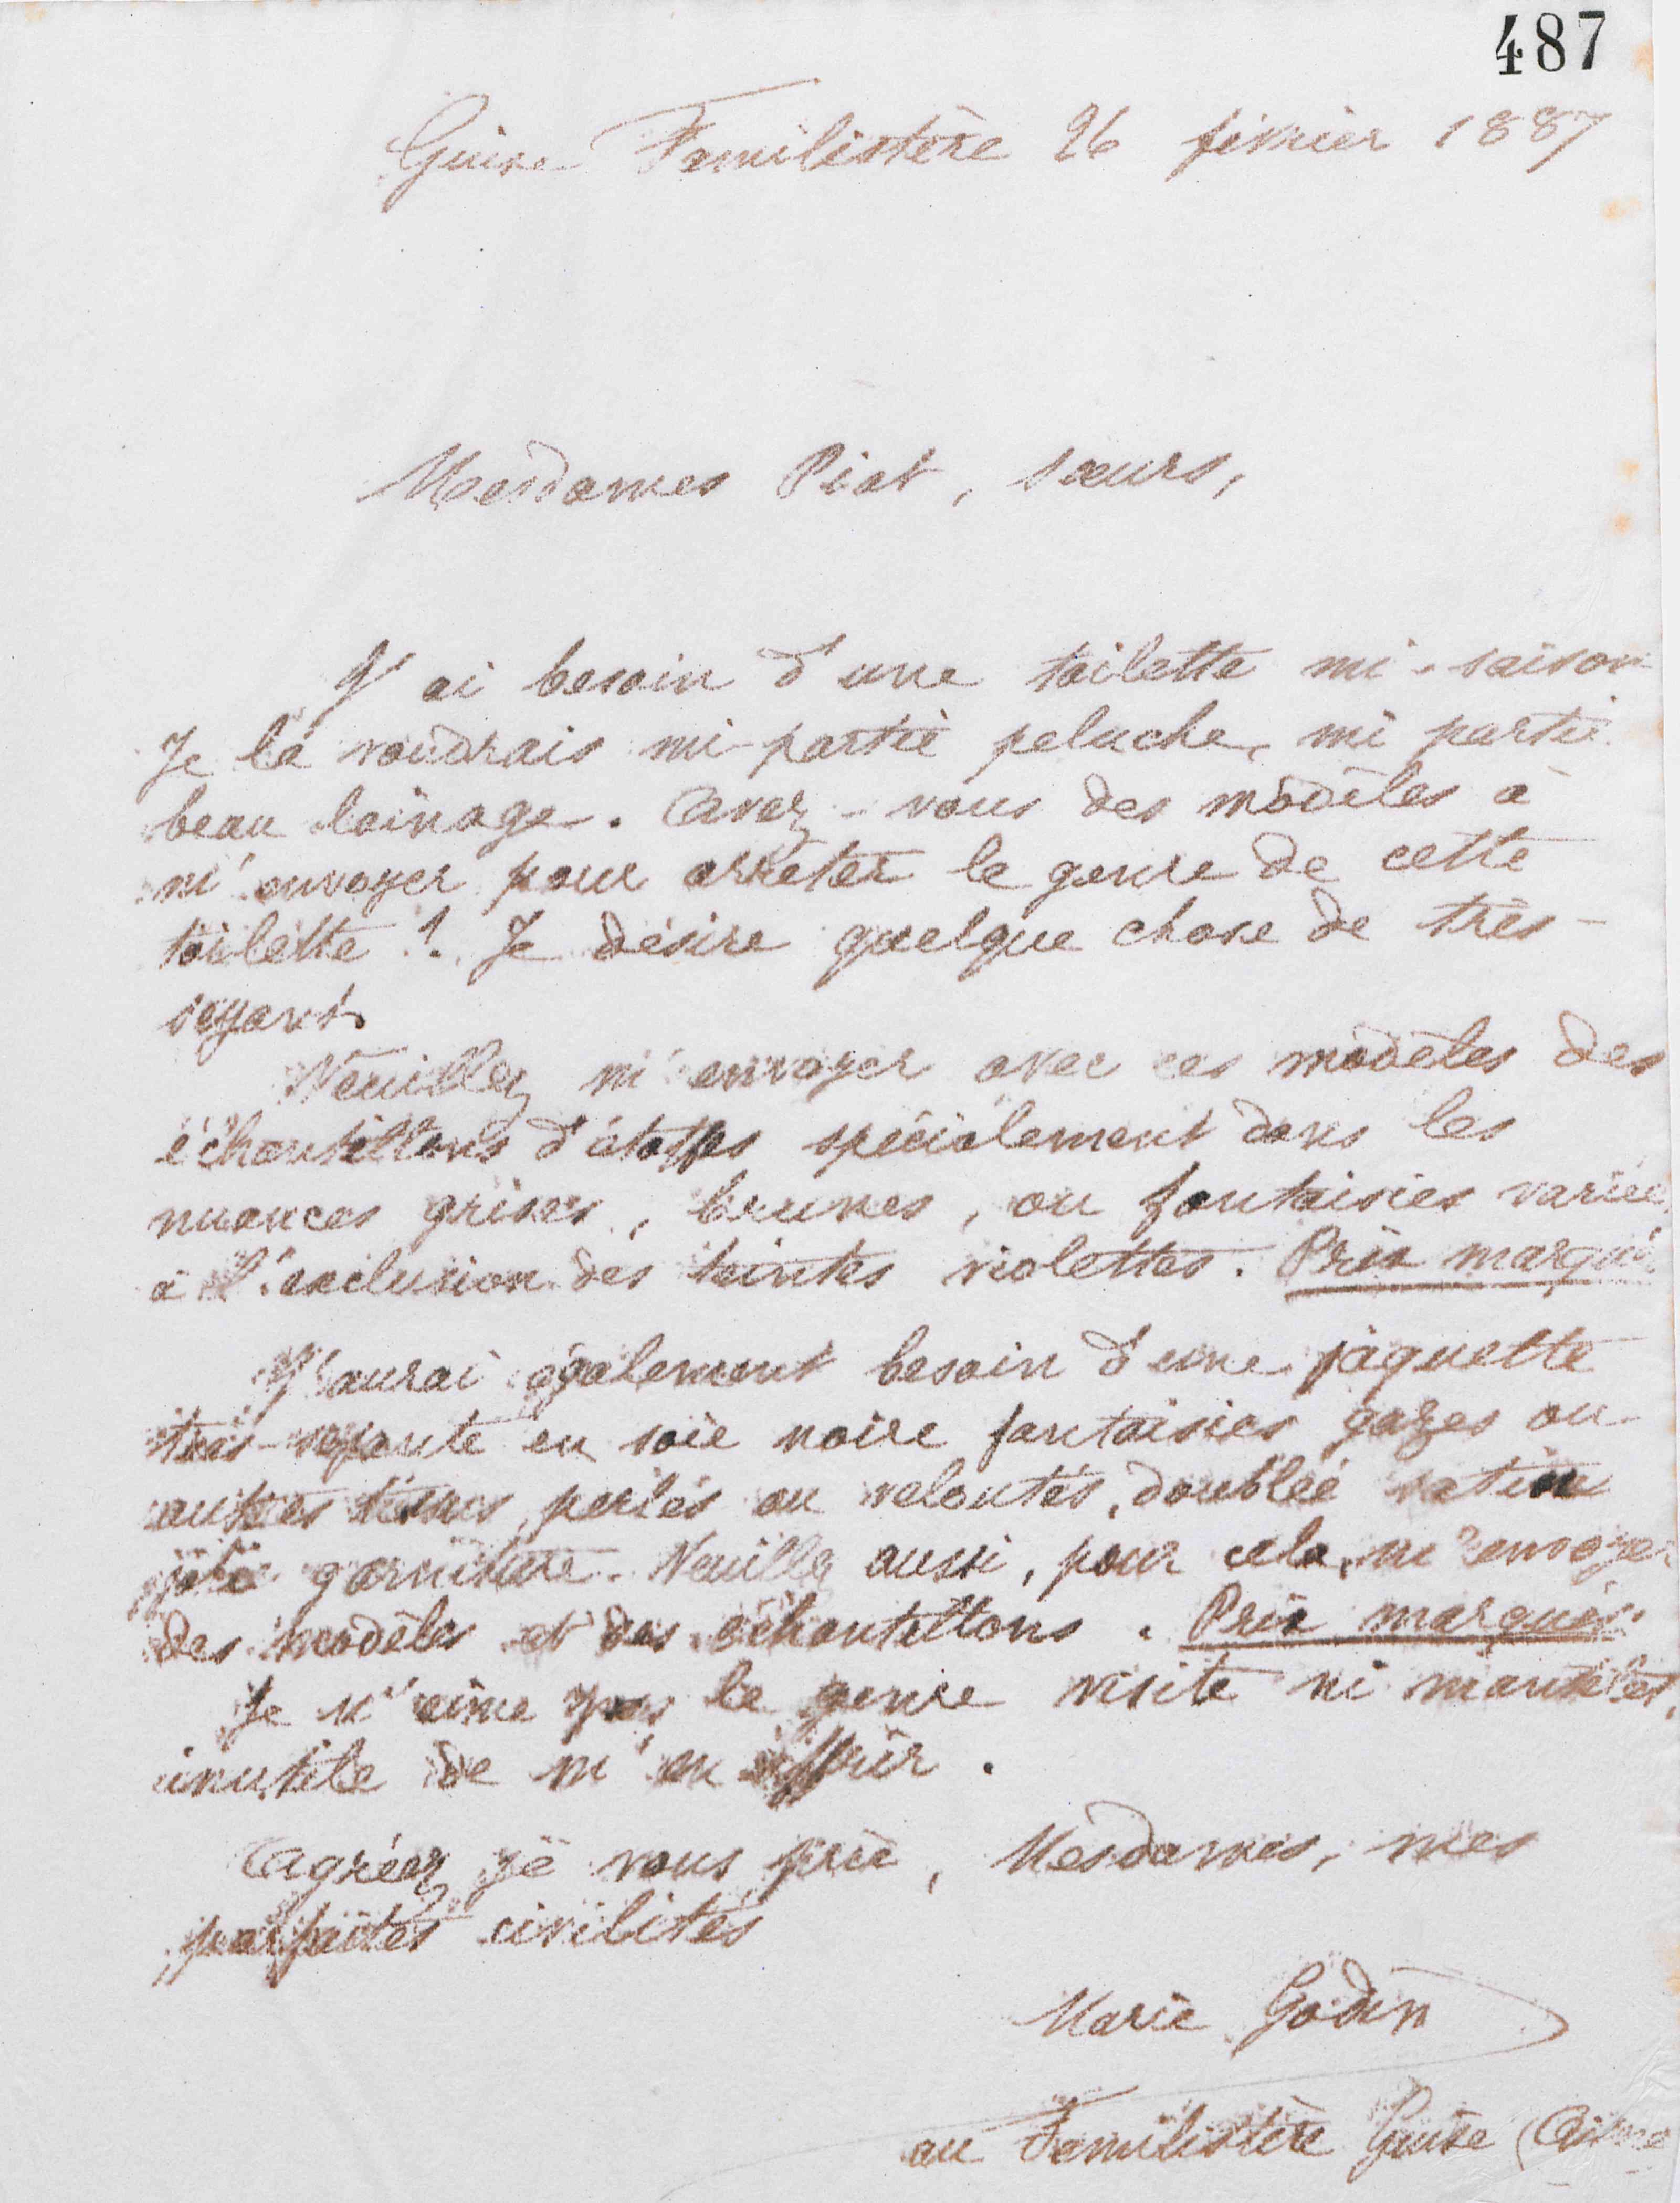 487
Guise Familistère 26 février 1887
Mesdames Piat, sœurs,
J'ai besoin d'une toilette mi-saison
Je la voudrais mi-partie peluche, mi partie
beau lainage. Avez-vous des modèles à
m'envoyer pour arrêter le genre de cette
toilette ? Je désire quelque chose de très-
seyant.
Veuillez m'envoyer avec ces modèles des
échantillons d'étoffes spécialement dans les
nuances grises, brunes, ou fantaisies variées
à l'exclusion des teintes violettes. Prix marqués
J'aurai également besoin d'une jaquette
très-seyante en soie noire fantaisies gazes ou
autres tissus perlés ou veloutés, doublée satin
jolie garniture. Veuillez aussi, pour cela, m'envoyer
des modèles et des échantillons. Prix marqués.
Je n'aime pas le genre visite ni mantelet,
inutile de m'en offrir.
Agréez je vous prie, Mesdames, mes
parfaites civilités
Marie Godin
au Familistère Guise (Aisne